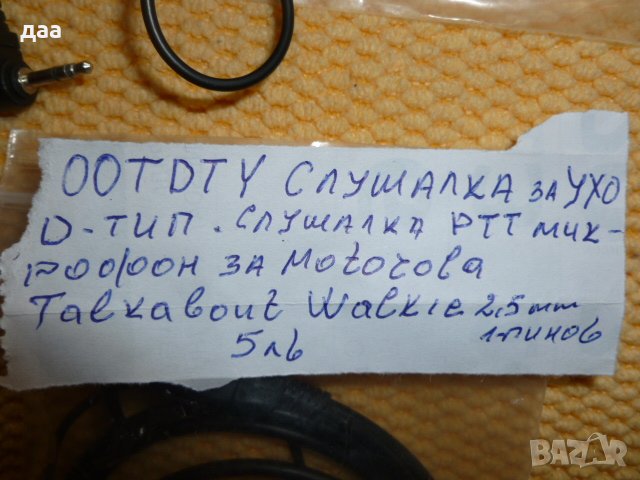 даа
OOTDTY СЛУШАЛКА ЗА УХО
D-ТИП. СЛУШАЛКА PTT МИК-
РОФОН ЗА Motorola
Talkabout Walkie 2,5mm
1пинов
5лв
BAZAR